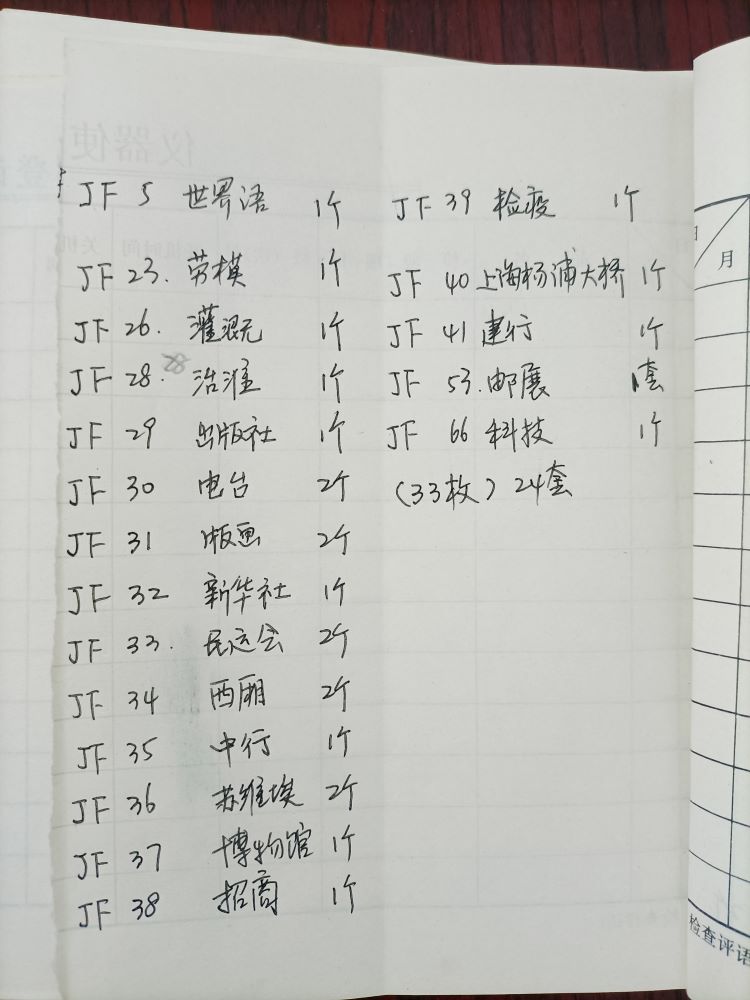 JF 5 世界语 1个
JF 23. 劳模 1个
JF 26. 灌溉 1个
JF 28. 治淮 1个
JF 29 出版社 1个
JF 30 电台 2个
JF 31 版画 2个
JF 32 新华社 1个
JF 33. 民运会 2个
JF 34 西厢 2个
JF 35 中行 1个
JF 36 苏维埃 2个
JF 37 博物馆 1个
JF 38 招商 1个
JF 39 检疫 1个
JF 40 上海杨浦大桥 1个
JF 41 建行 1个
JF 53. 邮展 1套
JF 66 科技 1个
(33枚) 24套
仪器使
月
检查评语